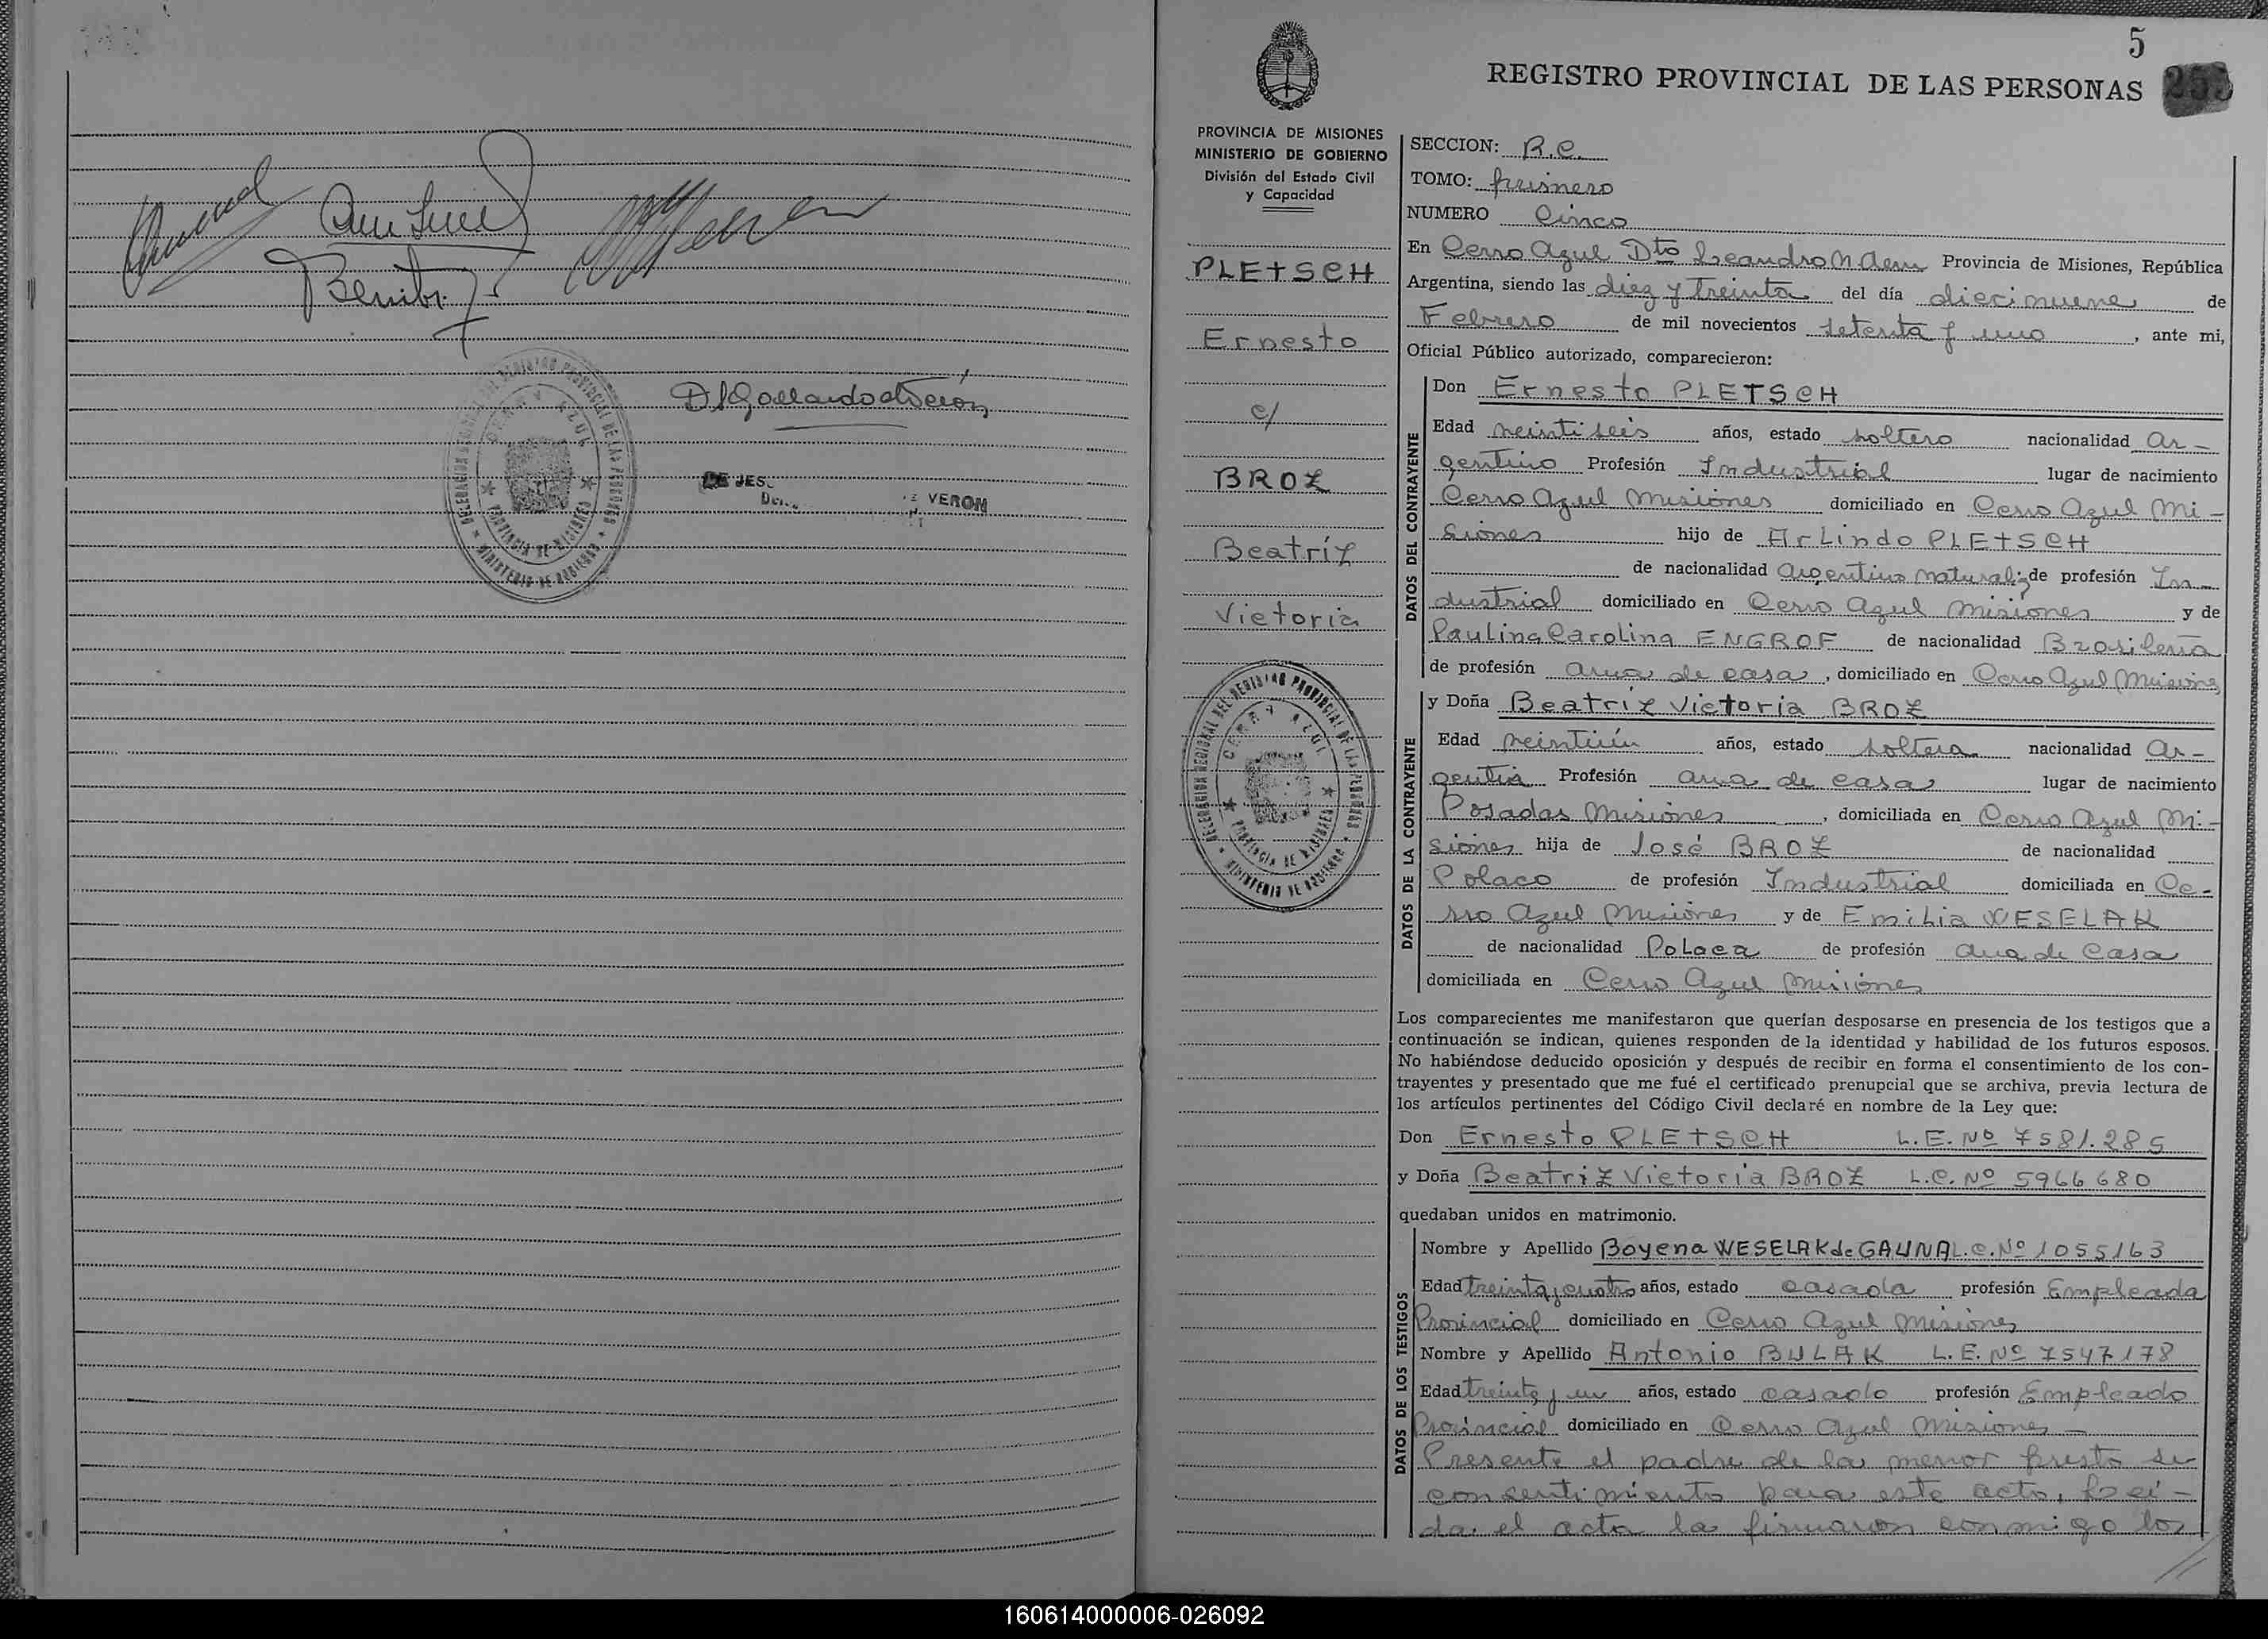 Benitez
DE JES
VERON
5
REGISTRO PROVINCIAL DE LAS PERSONAS
PROVINCIA DE MISIONES
MINISTERIO DE GOBIERNO
División del Estado Civil
y Capacidad
PLETSCH
Ernesto
c/
BROZ
Beatríz
Victoria
SECCION: R.C.
TOMO: primero
NUMERO Cinco
En Cerro Azul Dto Leandro N Alem Provincia de Misiones, República
Argentina, siendo las diez y treinta del día diecinueve de
Febrero de mil novecientos setenta y uno, ante mi,
Oficial Público autorizado, comparecieron:
DATOS DEL CONTRAYENTE
Don Ernesto PLETSCH
Edad veintiseis años, estado soltero nacionalidad Ar-
gentino Profesión Industrial lugar de nacimiento
Cerro Azul Misiones domiciliado en Cerro Azul Mi-
siones hijo de Arlindo PLETSCH
de nacionalidad Argentino naturaliz de profesión In-
dustrial domiciliado en Cerro Azul Misiones y de
Paulina Carolina ENGROF de nacionalidad Brasileña
de profesión ama de casa, domiciliado en Cerro Azul Misiones
DATOS DE LA CONTRAYENTE
y Doña Beatríz Victoria BROZ
Edad veintiún años, estado soltera nacionalidad Ar-
gentia Profesión ama de casa lugar de nacimiento
Posadas Misiones, domiciliada en Cerro Azul Mi-
siones hija de José BROZ de nacionalidad
Polaco de profesión Industrial domiciliada en Ce-
rro Azul Misiones y de Emilia WESELAK
de nacionalidad Polaca de profesión ama de Casa
domiciliada en Cerro Azul Misiones
Los comparecientes me manifestaron que querían desposarse en presencia de los testigos que a
continuación se indican, quienes responden de la identidad y habilidad de los futuros esposos.
No habiéndose deducido oposición y después de recibir en forma el consentimiento de los con-
trayentes y presentado que me fué el certificado prenupcial que se archiva, previa lectura de
los artículos pertinentes del Código Civil declaré en nombre de la Ley que:
Don Ernesto PLETSCH L.E. Nº 7581.285
y Doña Beatriz Victoria BROZ L.C. Nº 5966680
quedaban unidos en matrimonio.
DATOS DE LOS TESTIGOS
Nombre y Apellido Boyena WESELAK de GAUNA L.C. Nº 1055163
Edad treinta y cuatro años, estado casada profesión Empleada
Provincial domiciliado en Cerro Azul Misiones
Nombre y Apellido Antonio BULAK L.E. Nº 7547178
Edad treinta y un años, estado casado profesión Empleado
Provincial domiciliado en Cerro Azul Misiones
Presente el padre de la menor presta su
consentimiento para este acto, Leí-
da el acta la firmaron conmigo los
160614000006-026092